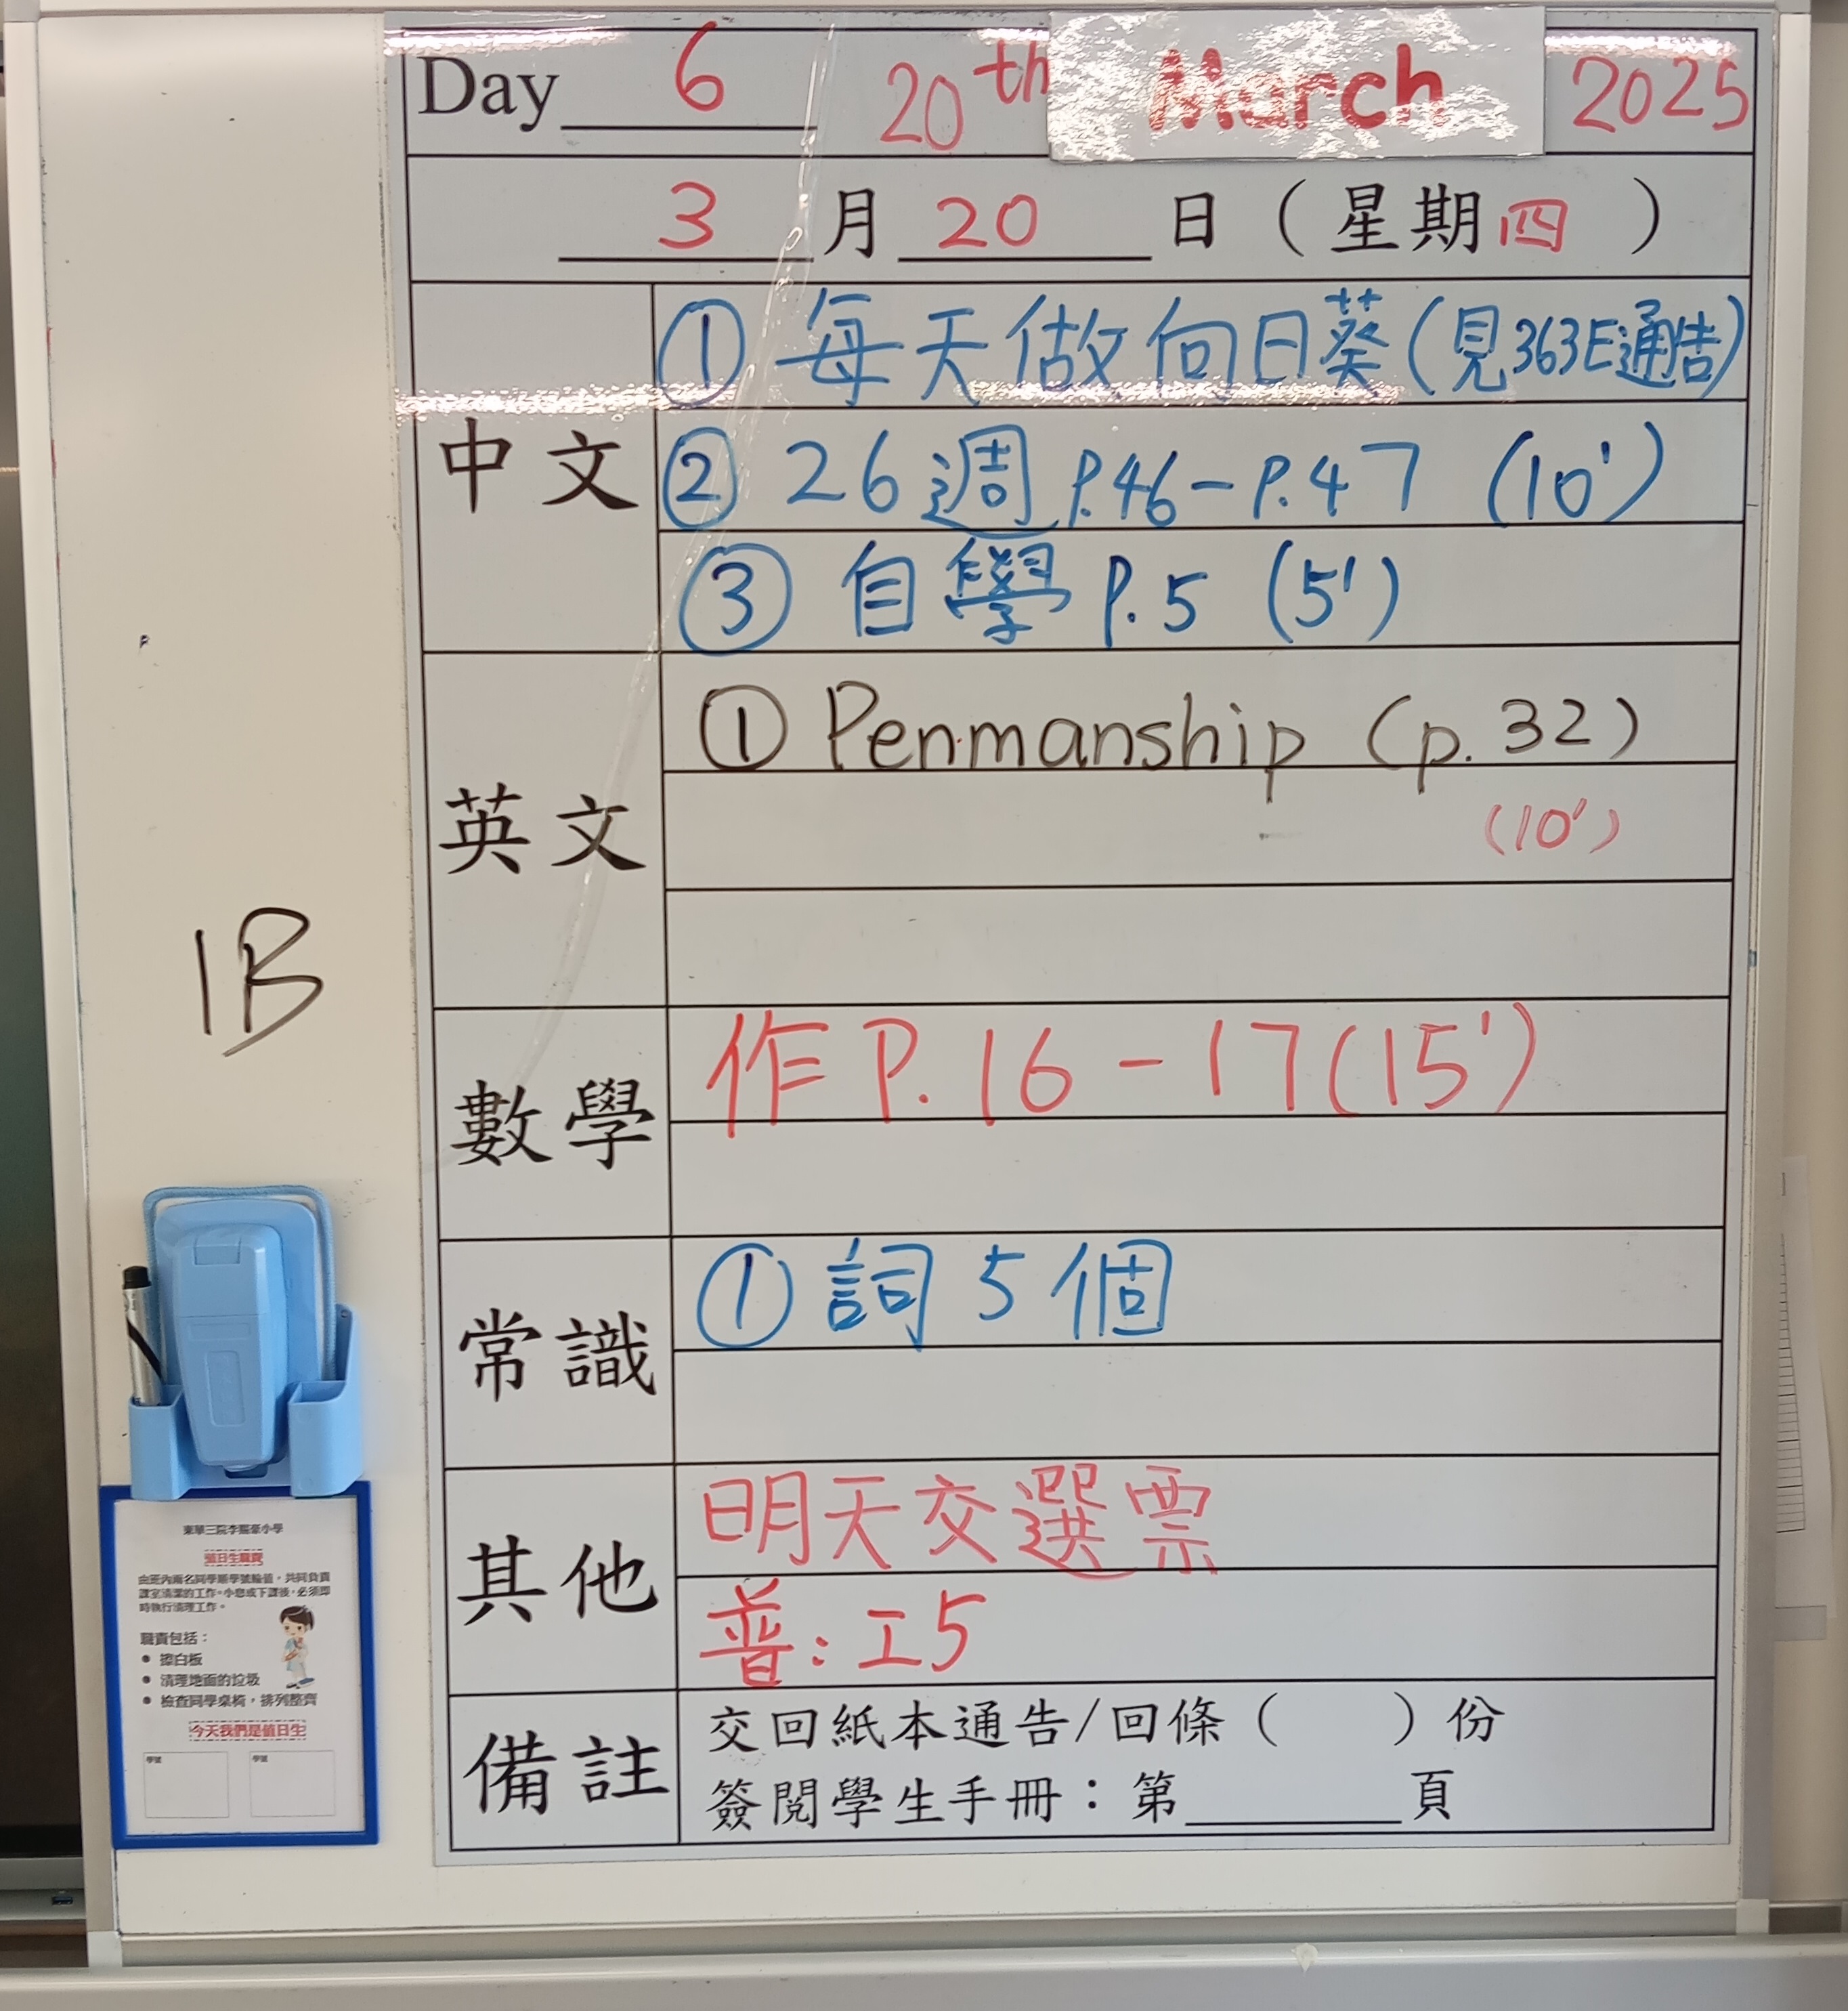 Day 6 20th March 2025
3 月 20 日 ( 星期四 )
中文
① 每天做向日葵(見363E通告)
② 26週 P.46-P.47 (10')
③ 自學 P.5 (5')
英文
① Penmanship (p.32)
(10')
1B
數學
作 P.16-17(15')
常識
① 詞 5 個
其他
明天交選票
普:工5
備註
交回紙本通告/回條( )份
簽閱學生手冊:第______頁
值日生職責
由班內兩名同學順學號輪值,共同負責
課室清潔的工作。小息或下課後,必須即
時執行清理工作。
職責包括:
• 擦白板
• 清理地面的垃圾
• 檢查同學桌椅,排列整齊
今天我們是值日生
學號 學號